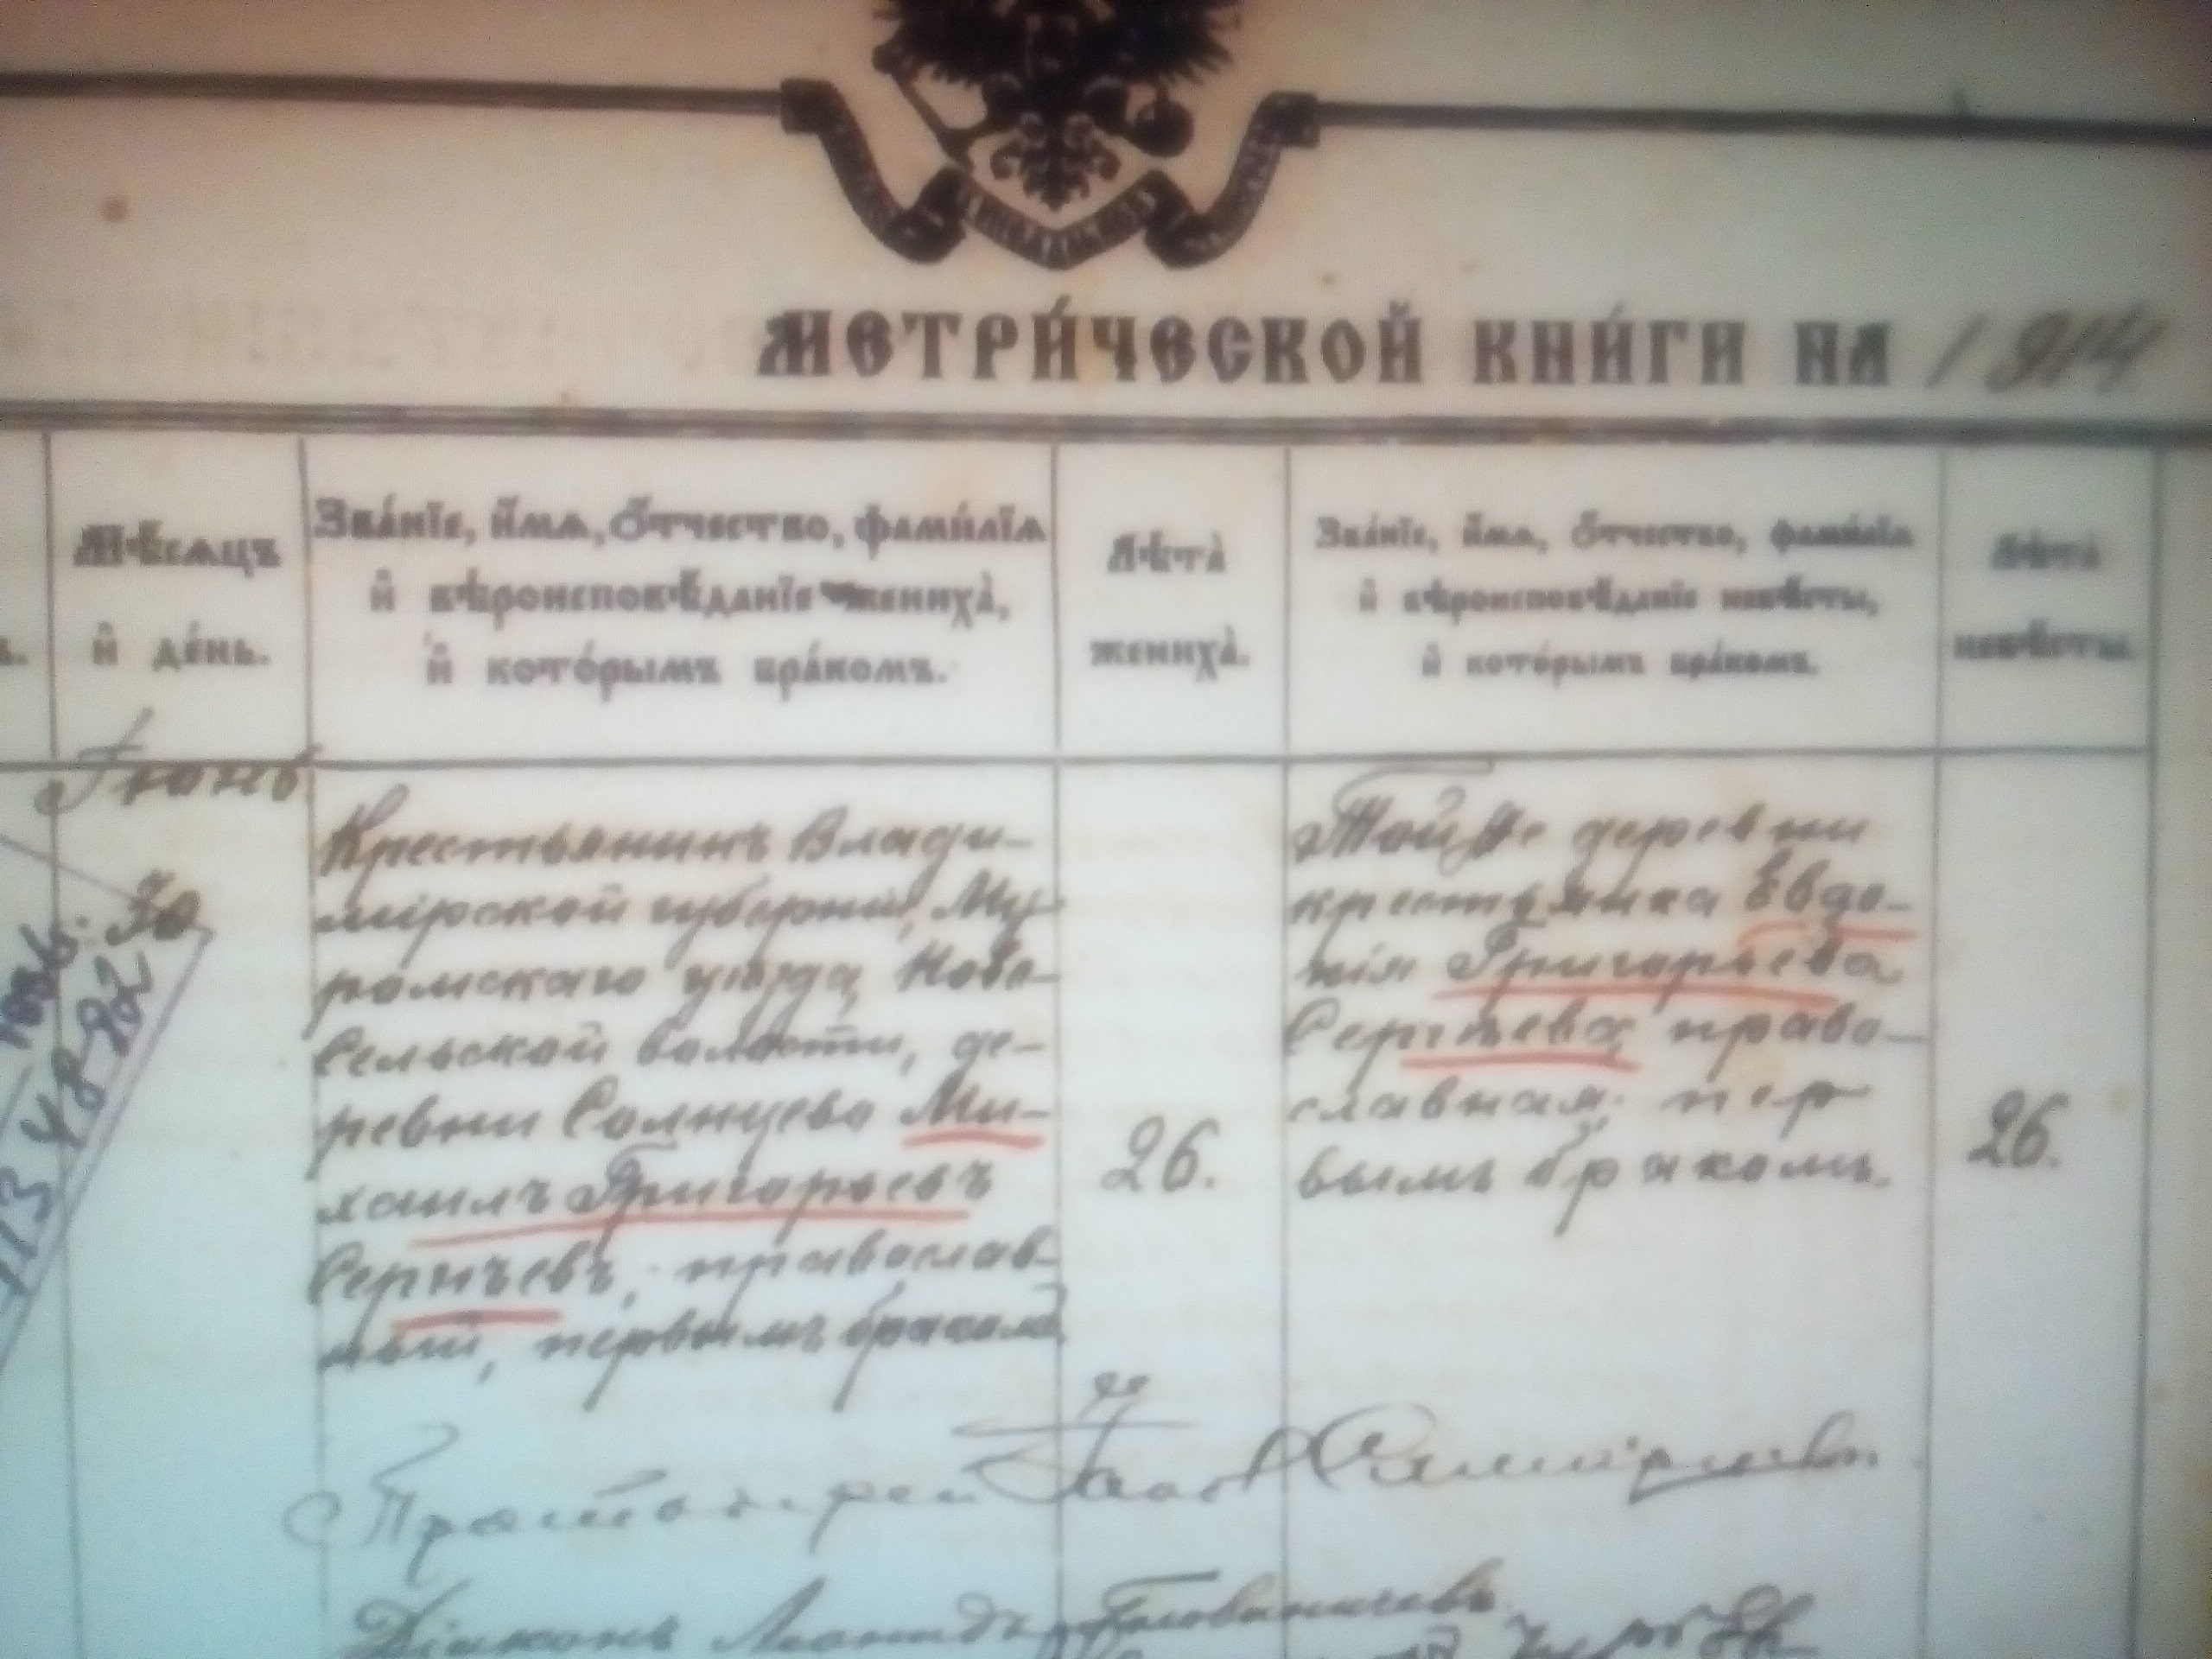 МЕТРИ́ЧЕСКОЙ КНИ́ГИ НА 1914
Мѣ́сяцъ
и҆ де́нь.
Зва́нїе, и҆́мѧ, ѻ҆́тчество, фами́лїѧ
и҆ вѣроисповѣ́данїе жениха̀,
и҆ кото́рымъ бра́комъ.
Лѣта̀
жениха̀.
Зва́нїе, и҆́мѧ, ѻ҆́тчество, фами́лїѧ
и҆ вѣроисповѣ́данїе невѣ́сты,
и҆ кото́рымъ бра́комъ.
Лѣта̀
невѣ́сты.
Іюнь
30
Крестьянинъ Влади-
мірской губерніи, Му-
ромскаго уѣзда, Ново-
сельской волости, де-
ревни Солнцево Ми-
хаилъ Григорьевъ
Сергѣевъ, православ-
ный, первымъ бракомъ
26.
Той же деревни
крестьянка Евдо-
кія Григорьева
Сергѣева, право-
славная, пер
вымъ бракомъ.
26.
Протоіерей Павелъ
Діаконъ Леонидъ